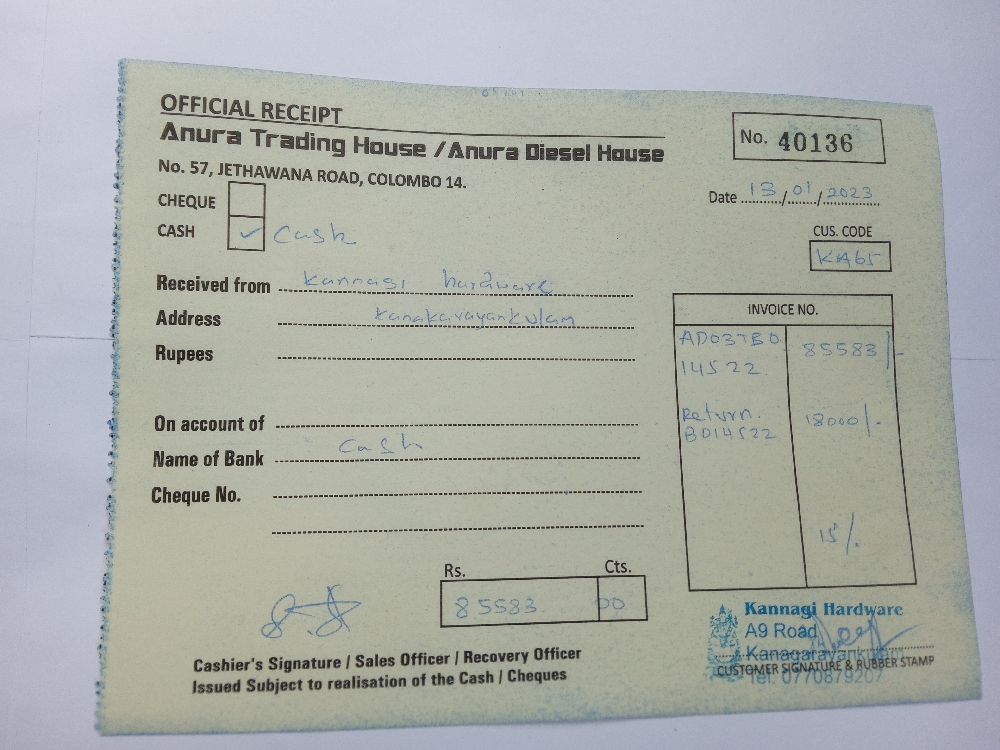 OFFICIAL RECEIPT
Anura Trading House / Anura Diesel House
No. 57, JETHAWANA ROAD, COLOMBO 14.
No. 40136
Date 13/01/2023
CHEQUE
CASH ✓ Cash
CUS. CODE
KA65
Received from Kannagi hardware
Address Kanakarayankulam
Rupees
On account of
Name of Bank Cash
Cheque No.
INVOICE NO.
AD03TBO 85583/-
14522
Return. 18000/-
BD14522
15/.
Rs. Cts.
85583. 00
Cashier's Signature / Sales Officer / Recovery Officer
Issued Subject to realisation of the Cash / Cheques
Kannagi Hardware
A9 Road
Kanagarayankulam
CUSTOMER SIGNATURE & RUBBER STAMP
Tel: 0770879207